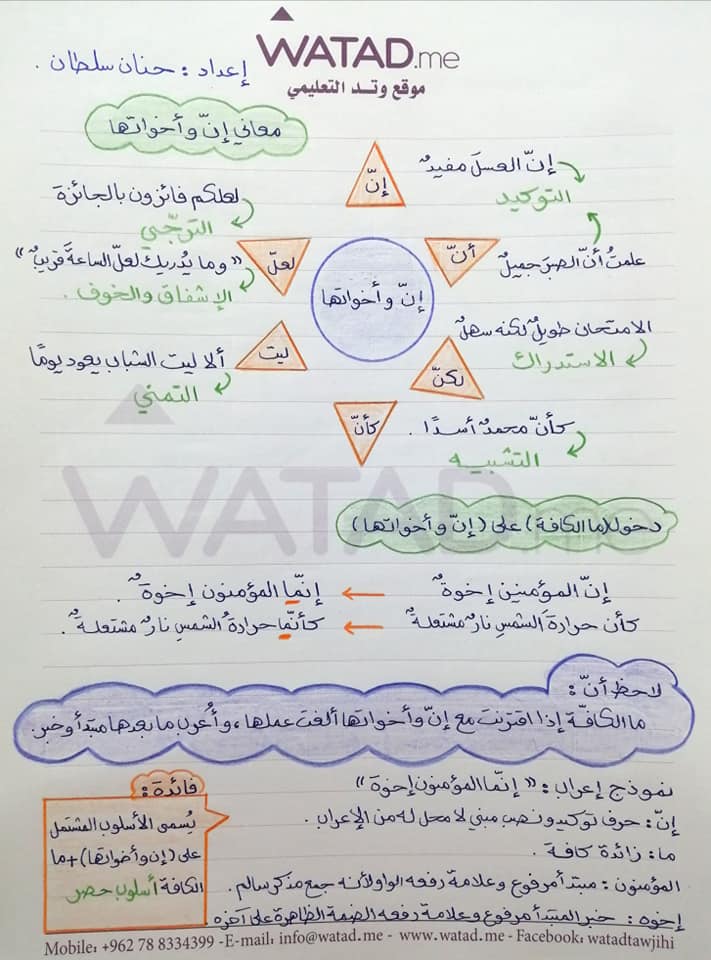 WATAD.me
موقع وتد التعليمي
إعداد : حنان سلطان .
معاني إنّ وأخواتها
إنّ
إنّ العسلَ مفيدٌ
التوكيد
أنّ
علمتُ أنّ الصبرَ جميلٌ
لكنّ
الامتحان طويلٌ لكنه سهلٌ
الاستدراك
كأنّ
كأنّ محمدٌ أسدًا .
التشبيه
ليت
ألا ليت الشباب يعود يومًا
التمني
لعلّ
لعلكم فائزون بالجائزة
الترجّي
« وما يُدريك لعلّ الساعةَ قريبٌ »
الإشفاق والخوف .
إنّ وأخواتها
دخول (ما الكافة) على (إنّ وأخواتها)
إنّ المؤمنين إخوةٌ ← إنّما المؤمنون إخوةٌ .
كأن حرارةَ الشمسِ نارٌ مشتعلةٌ ← كأنّما حرارةُ الشمسِ نارٌ مشتعلةٌ .
لاحظ أنّ :
ما الكافّة إذا اقترنت مع إنّ وأخواتها ألغت عملها ، وأُعرب ما بعدها مبتدأ وخبر.
نموذج إعراب : « إنّما المؤمنون إخوة »
إنّ : حرف توكيد ونصب مبني لا محل له من الإعراب .
ما : زائدة كافة .
المؤمنون : مبتدأ مرفوع وعلامة رفعه الواو لأنه جمع مذكر سالم .
إخوة : خبر المبتدأ مرفوع وعلامة رفعه الضمة الظاهرة على آخره .
فائدة :
يُسمى الأسلوب المشتمل
على (إن وأخواتها) + ما
الكافة أسلوب حصر
Mobile: +962 78 8334399 -E-mail: info@watad.me - www.watad.me - Facebook: watadtawjihi
WATAD.me